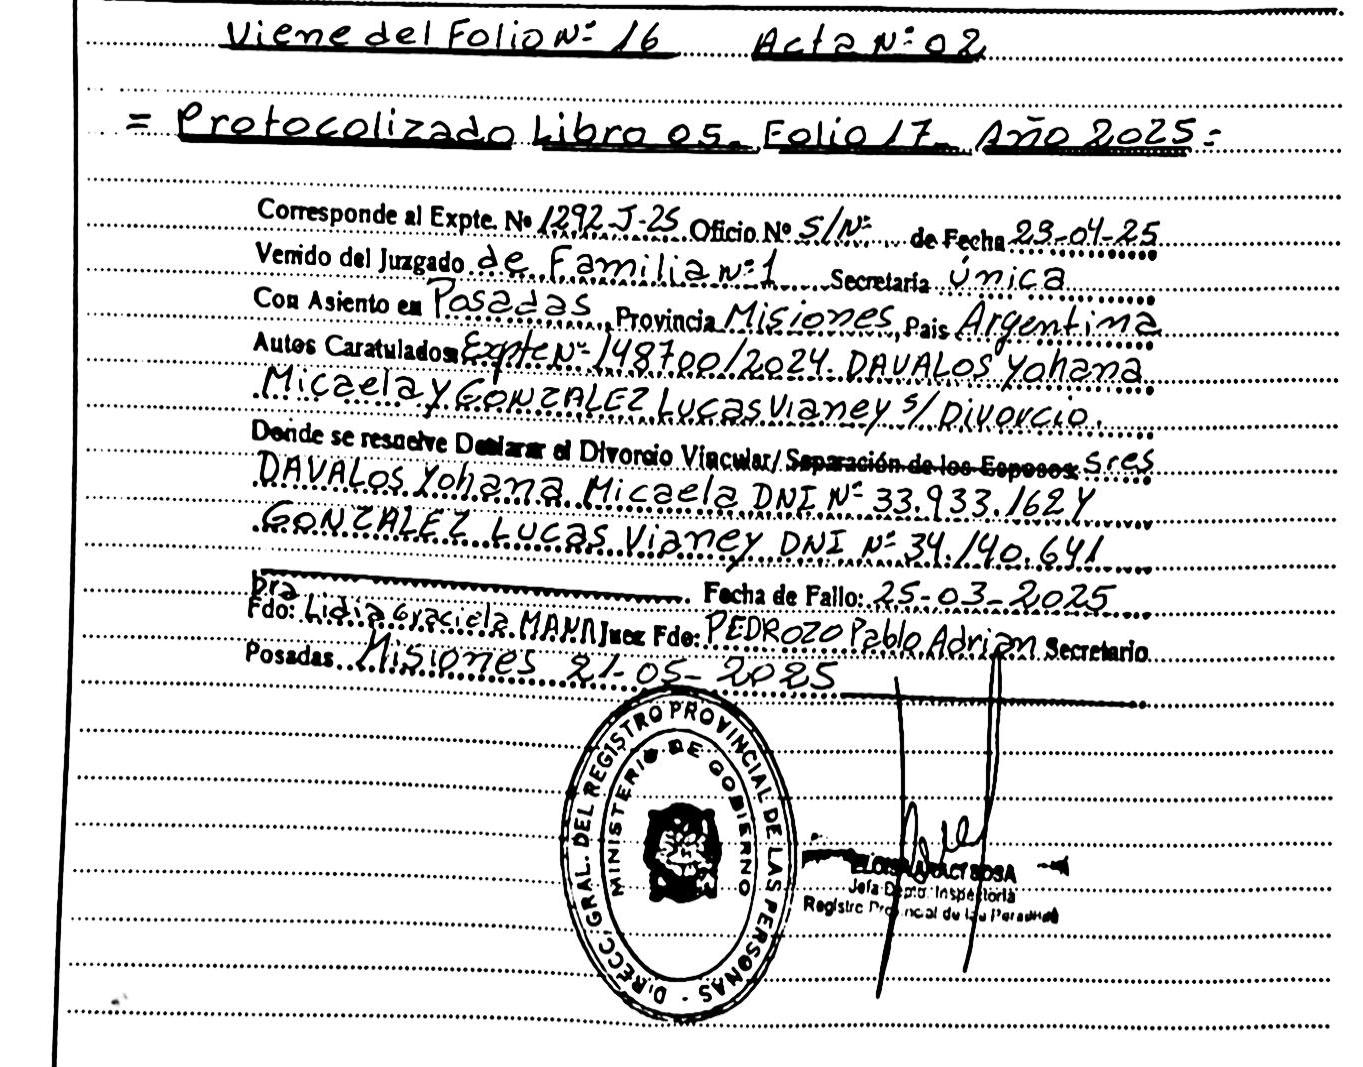 Viene del Folio Nº 16 Acta Nº 02
= Protocolizado Libro 05. Folio 17. Año 2025=
Corresponde al Expte. Nº 1292 J-25 Oficio Nº S/Nº de Fecha 23-04-25
Venido del Juzgado de Familia nº 1 Secretaría única
Con Asiento en Posadas, Provincia Misiones, Pais Argentina
Autos Caratulados: Expte Nº 148700/2024. DAVALOS Yohana
Micaela y GONZALEZ Lucas Vianey s/ Divorcio.
Donde se resuelve Declarar el Divorcio Vincular/ Separación de los Esposos: sres
DAVALOS Yohana Micaela DNI Nº 33.933.162 y
GONZALEZ Lucas Vianey DNI Nº 34.140.641
. Fecha de Fallo: 25-03-2025
Dra
Fdo: Lidia Graciela Juez Fdo: PEDROZO Pablo Adrian Secretario
Posadas Misiones 21-05-2025
DIRECC. GRAL. DEL REGISTRO PROVINCIAL DE LAS PERSONAS -
MINISTERIO DE GOBIERNO
SOSA
Jefa Dpto. Inspectoria
Registro Provincial de las Personas